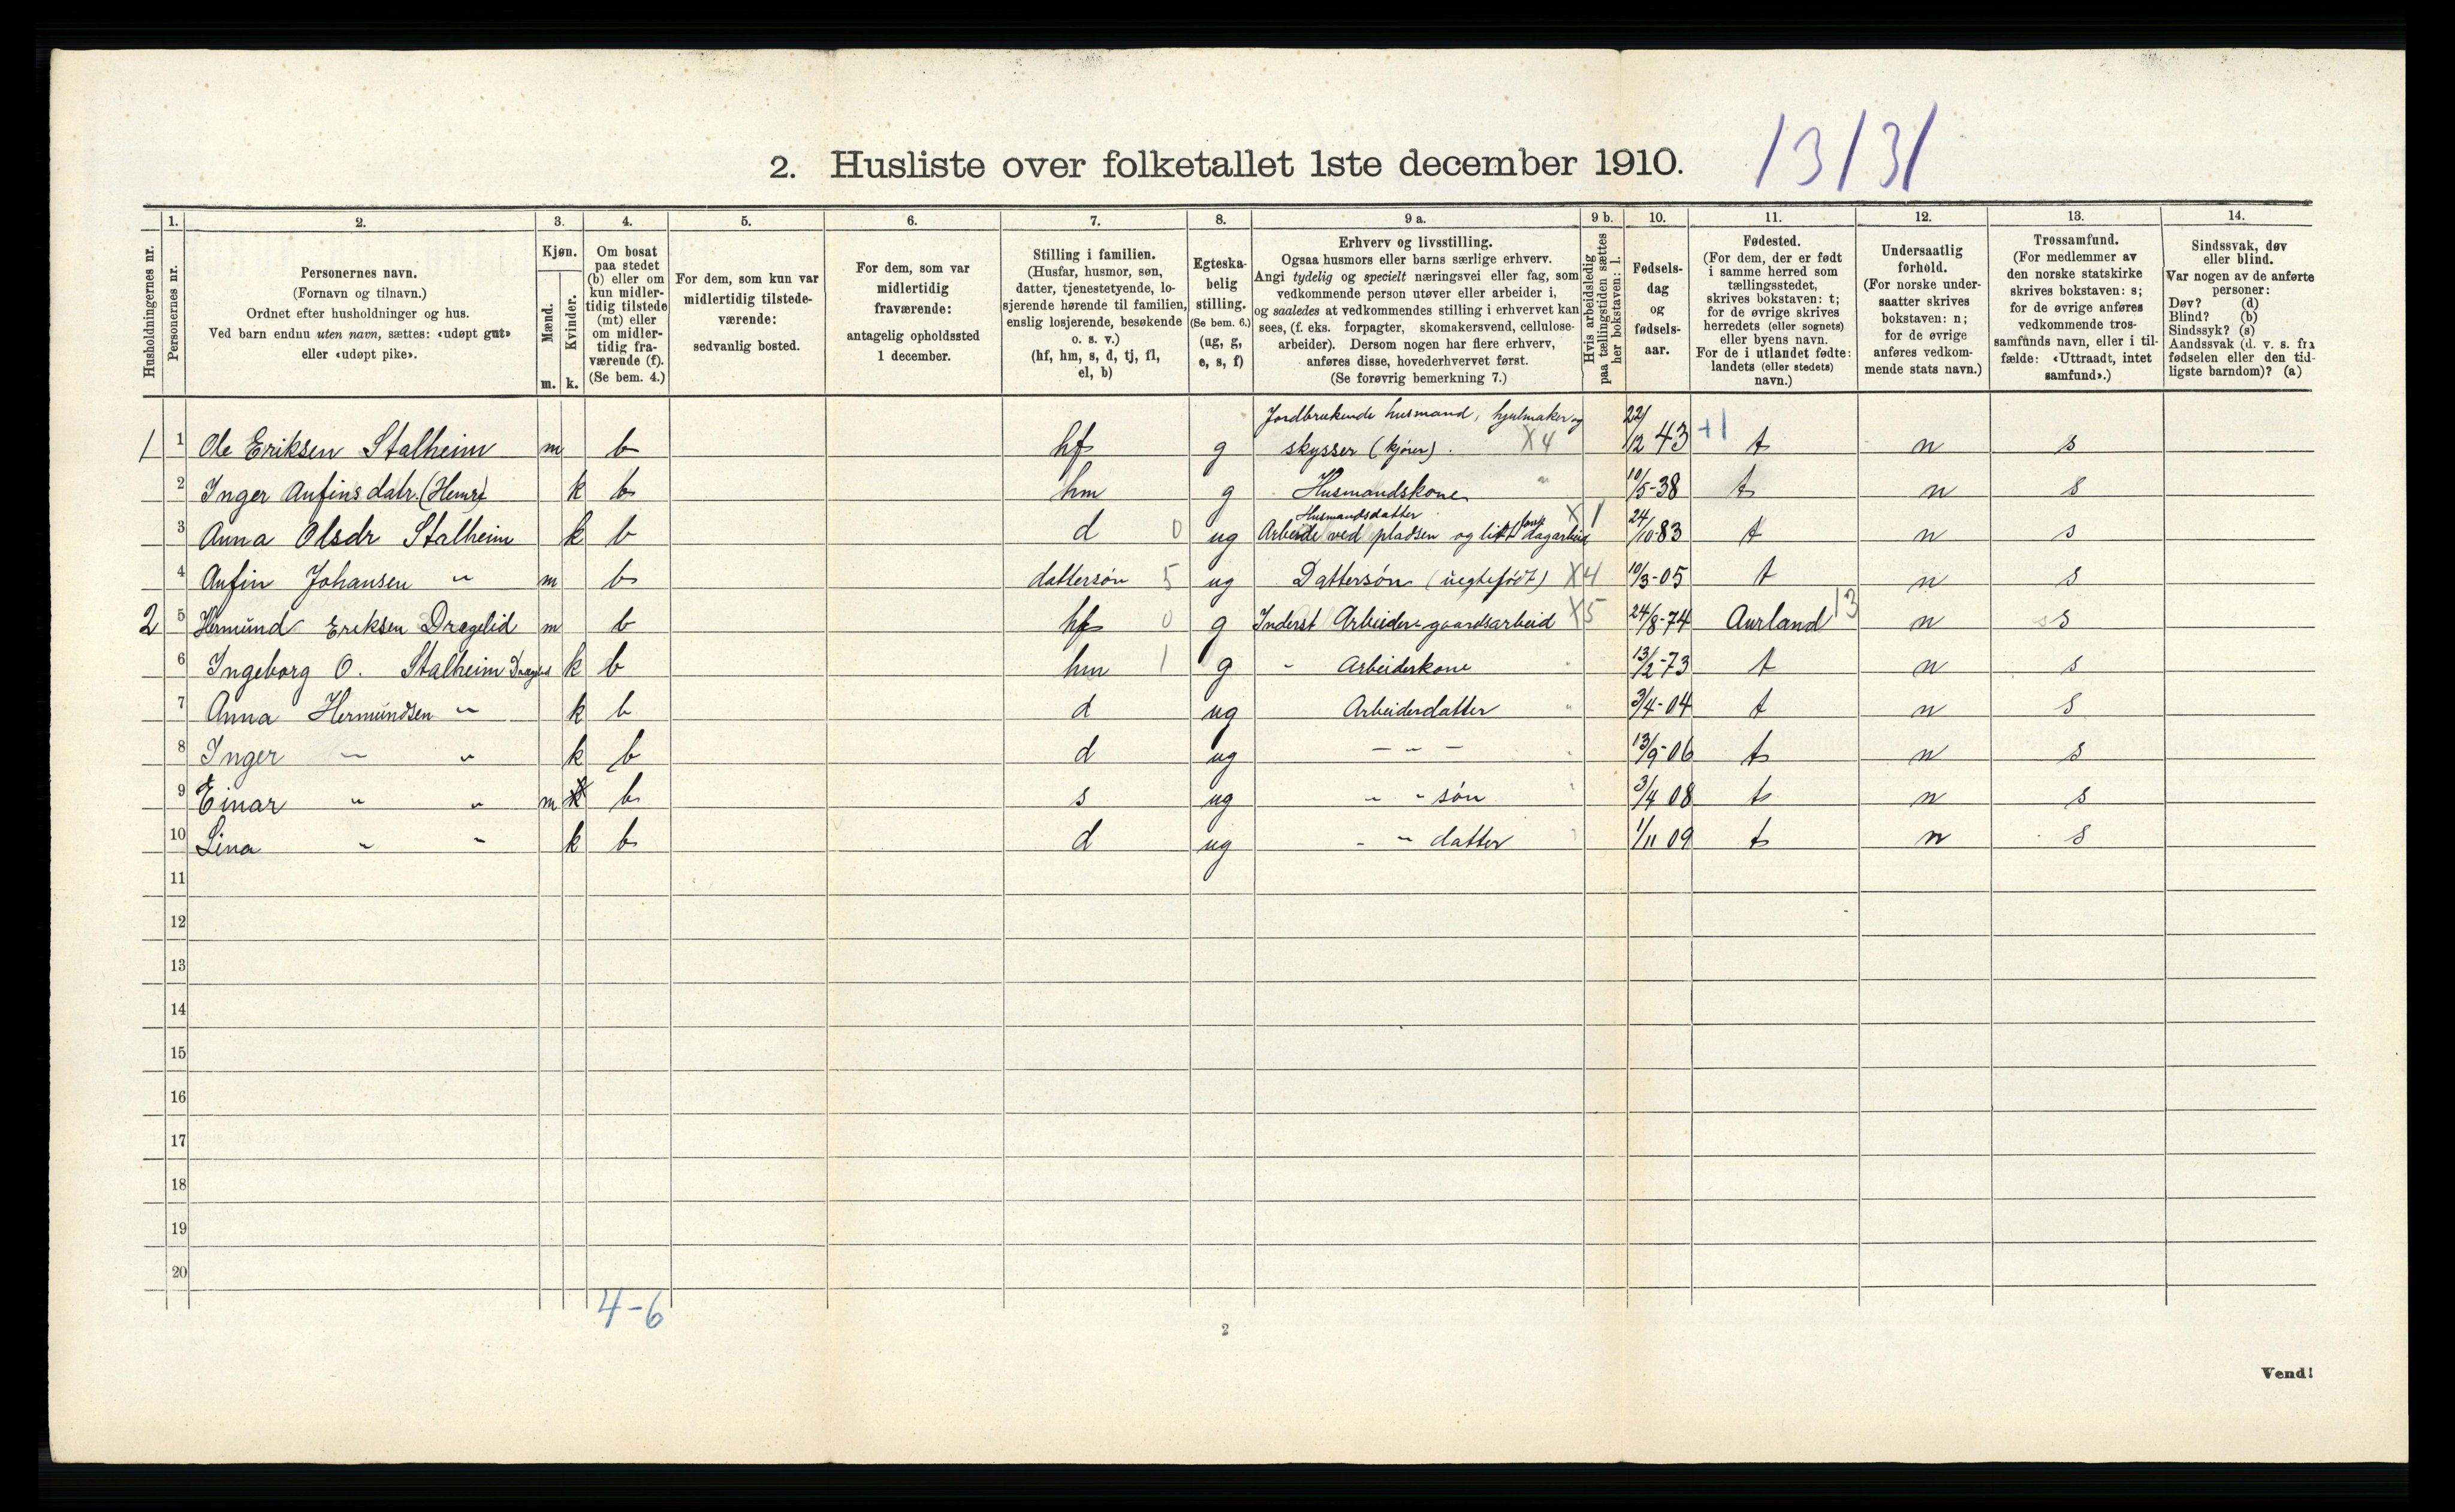 2. Husliste over folketallet 1ste december 1910. 13131
Husholdningernes nr.
1. Personernes nr.
2. Personernes navn. (Fornavn og tilnavn.) Ordnet efter husholdninger og hus. Ved barn endnu uten navn, sættes: «udøpt gut» eller «udøpt pike».
3. Kjøn. Mænd. m. Kvinder. k.
4. Om bosat paa stedet (b) eller om kun midlertidig tilstede (mt) eller om midlertidig fraværende (f). (Se bem. 4.)
5. For dem, som kun var midlertidig tilstedeværende: sedvanlig bosted.
6. For dem, som var midlertidig fraværende: antagelig opholdssted 1 december.
7. Stilling i familien. (Husfar, husmor, søn, datter, tjenestetyende, losjerende hørende til familien, enslig losjerende, besøkende o. s. v.) (hf, hm, s, d, tj, fl, el, b)
8. Egteskabelig stilling. (Se bem. 6.) (ug, g, e, s, f)
9 a. Erhverv og livsstilling. Ogsaa husmors eller barns særlige erhverv. Angi tydelig og specielt næringsvei eller fag, som vedkommende person utøver eller arbeider i, og saaledes at vedkommendes stilling i erhvervet kan sees, (f. eks. forpagter, skomakersvend, cellulosearbeider). Dersom nogen har flere erhverv, anføres disse, hovederhvervet først. (Se forøvrig bemerkning 7.)
9 b. Hvis arbeidsledig paa tællingstiden sættes her bokstaven: l.
10. Fødselsdag og fødselsaar.
11. Fødested. (For dem, der er født i samme herred som tællingsstedet, skrives bokstaven: t; for de øvrige skrives herredets (eller sognets) eller byens navn. For de i utlandet fødte: landets (eller stedets) navn.)
12. Undersaatlig forhold. (For norske undersaatter skrives bokstaven: n; for de øvrige anføres vedkommende stats navn.)
13. Trossamfund. (For medlemmer av den norske statskirke skrives bokstaven: s; for de øvrige anføres vedkommende trossamfunds navn, eller i tilfælde: «Uttraadt, intet samfund».)
14. Sindssvak, døv eller blind. Var nogen av de anførte personer: Døv? (d) Blind? (b) Sindssyk? (s) Aandssvak (d. v. s. fra fødselen eller den tidligste barndom)? (a)
1 1 Ole Eriksen Stalheim m b hf g Jordbrukende husmand, hjulmaker og skysser (kjører). X4 22/12 43 +1 t n s
2 Inger Anfinsdatr. k b hm g Husmandskone " 10/5-38 t n s
3 Anna Olsdr Stalheim k b d 0 ug Husmandsdatter Arbeide ved pladsen og litt dagarbeid X1 24/10-83 t n s
4 Anfin Johansen " m b dattersøn 5 ug Dattersøn (uegtefødt) X4 10/3-05 t n s
2 5 Hermund Eriksen Drægelid m b hf 0 g Inderst Arbeider gaardsarbeid X5 24/8-74 Aurland 13 n s
6 Ingeborg O. Stalheim k b hm 1 g " Arbeiderkone " 13/2-73 t n s
7 Anna Hermundsen " k b d ug Arbeiderdatter " 3/4-04 t n s
8 Inger " " k b d ug — " — " 13/9-06 t n s
9 Einar " " m k b s ug " " søn " 3/4 08 t n s
10 Lina " " k b d ug " " datter " 1/11 09 t n s
11
12
13
14
15
16
17
18
19
20
4-6
2
Vend!